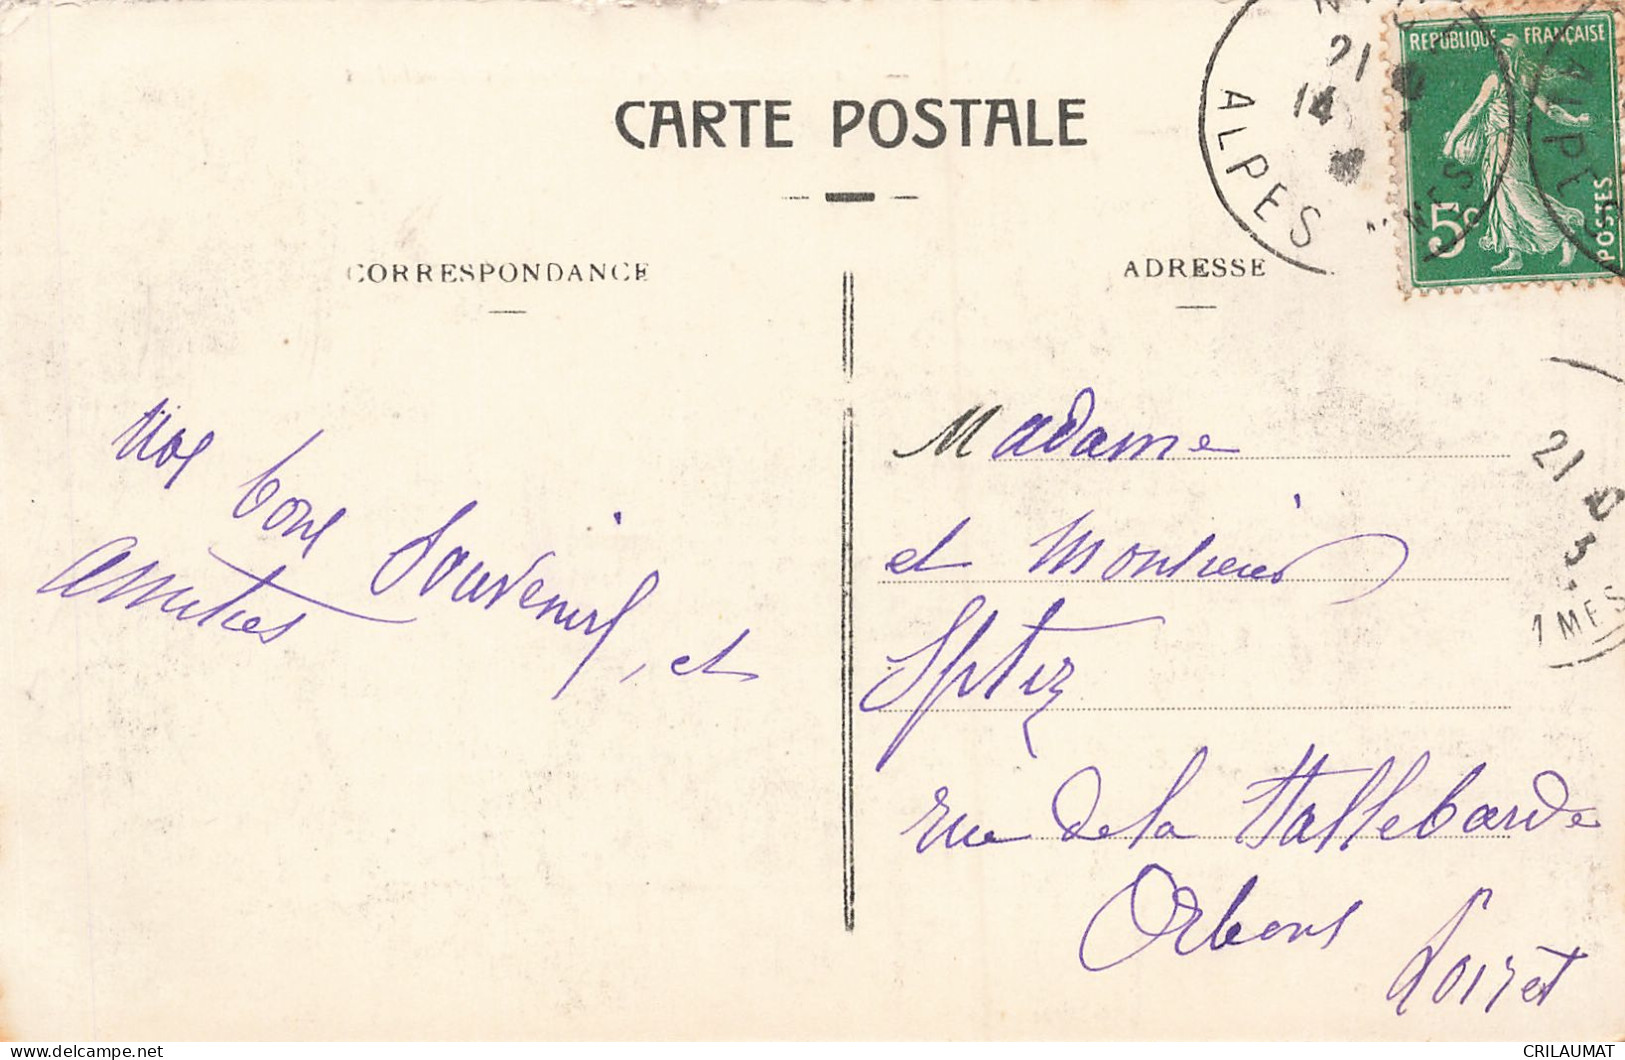 CARTE POSTALE
CORRESPONDANCE
ADRESSE
RÉPUBLIQUE FRANÇAISE
5c
POSTES
21
14
ALPES
ALPES
21
5
Nos bons Souvenirs, et
amitiés
Madame
et Monsieur
Sptiz
rue de la Hallebarde
Orleans
Loiret
CRILAUMAT